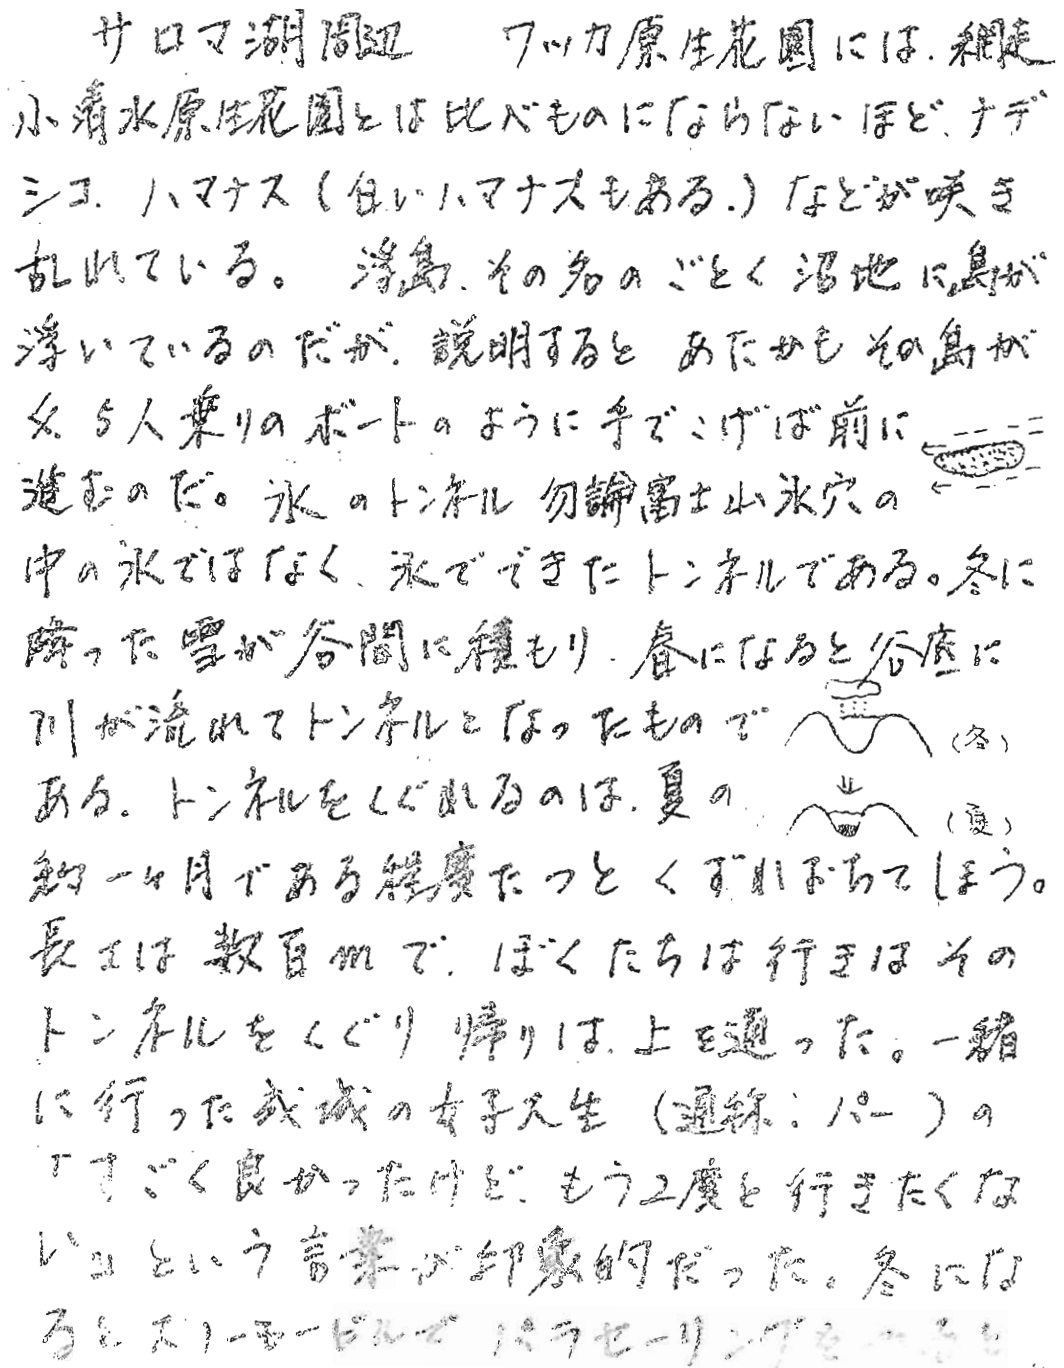 サロマ湖周辺　ワッカ原生花園には、網走
小清水原生花園とは比べものにならないほど、ナデ
シコ、ハマナス(白いハマナスもある。)などが咲き
乱れている。　浮島、その名のごとく沼地に島が
浮いているのだが、説明すると　あたかもその島が
4、5人乗りのボートのように手でこげば前に
進むのだ。氷のトンネル　勿論富士山氷穴の
中の氷ではなく、氷でできたトンネルである。冬に
降った雪が谷間に積もり、春になると谷底に
川が流れてトンネルとなったもので
(冬)
ある。トンネルをくぐれるのは、夏の
(夏)
約一ヶ月である程度たつとくずれおちてしまう。
長さは数百mで、ぼくたちは行きはその
トンネルをくぐり帰りは、上を通った。一緒
に行った成城の女子大生(通称:パー)の
『すごく良かったけど、もう2度と行きたくな
い』という言葉が印象的だった。冬にな
るとスノーモービルでパラセーリングを